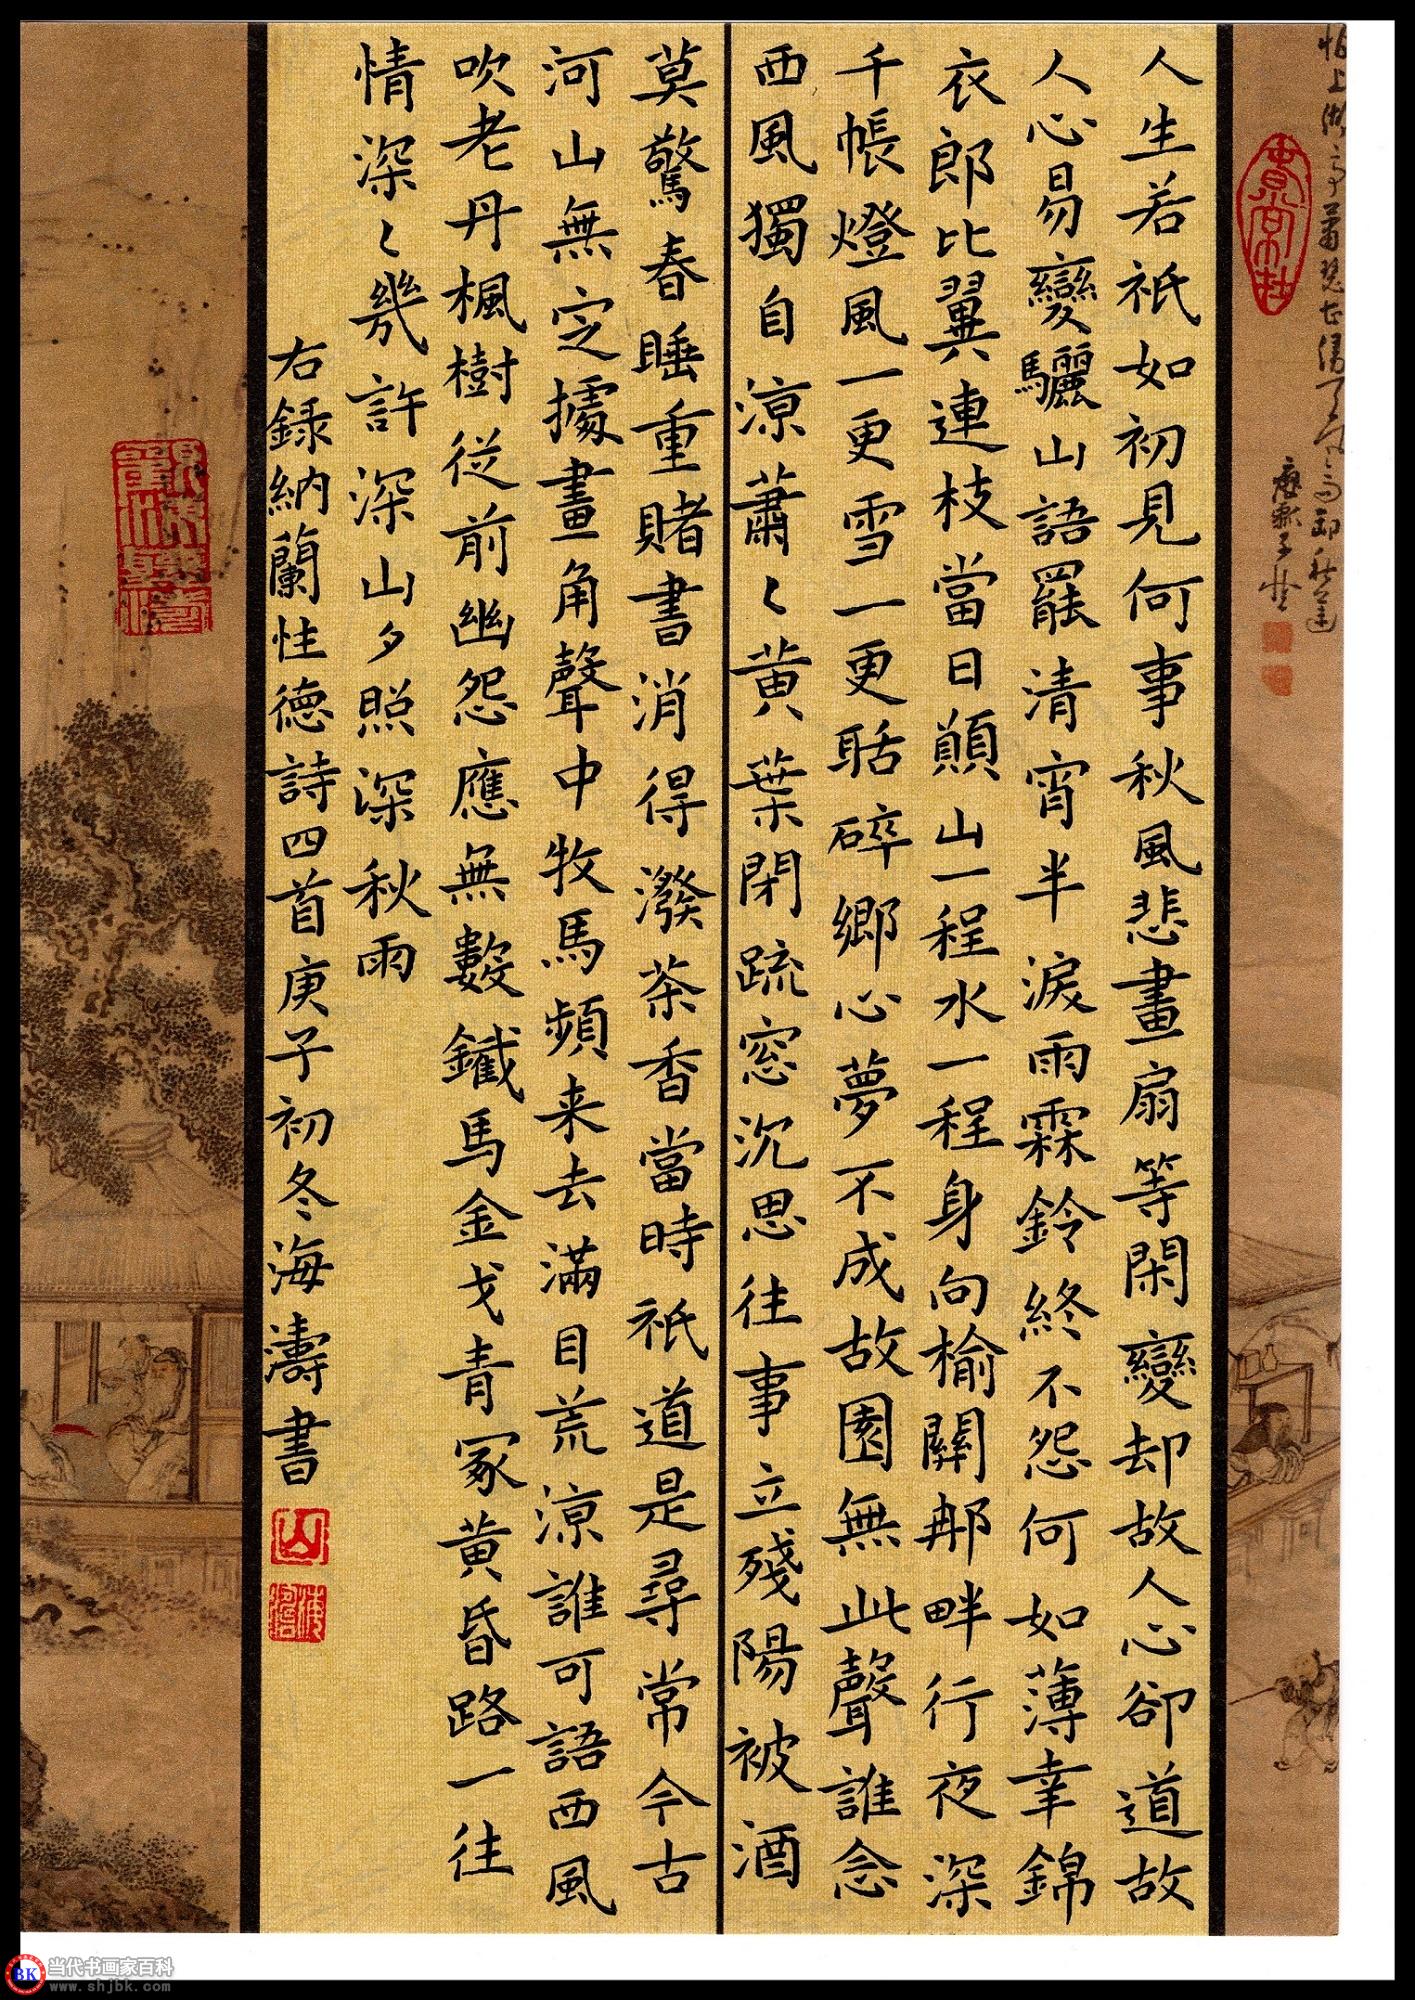 人生若祇如初見何事秋風悲畫扇等閑變却故人心卻道故
人心易變驪山語罷清宵半淚雨霖鈴終不怨何如薄幸錦
衣郎比翼連枝當日願山一程水一程身向榆關那畔行夜深
千帳燈風一更雪一更聒碎鄉心夢不成故園無此聲誰念
西風獨自涼蕭〻黃葉閉疏窓沉思往事立殘陽被酒
莫驚春睡重賭書消得潑茶香當時祇道是尋常今古
河山無定據畫角聲中牧馬頻来去滿目荒涼誰可語西風
吹老丹楓樹從前幽怨應無數鐵馬金戈青冢黃昏路一往
情深〻幾許深山夕照深秋雨
右録納蘭性德詩四首庚子初冬海濤書
山
當代书画家百科
www.shjbk.com
BK